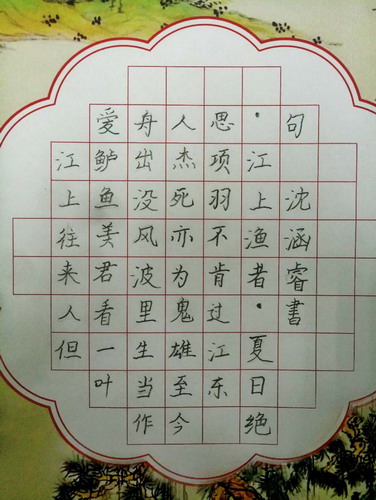 江上往来人但
爱鲈鱼美君看一叶
舟出没风波里生当作
人杰死亦为鬼雄至今
思项羽不肯过江东
·江上渔者·夏日绝
句 沈涵睿书